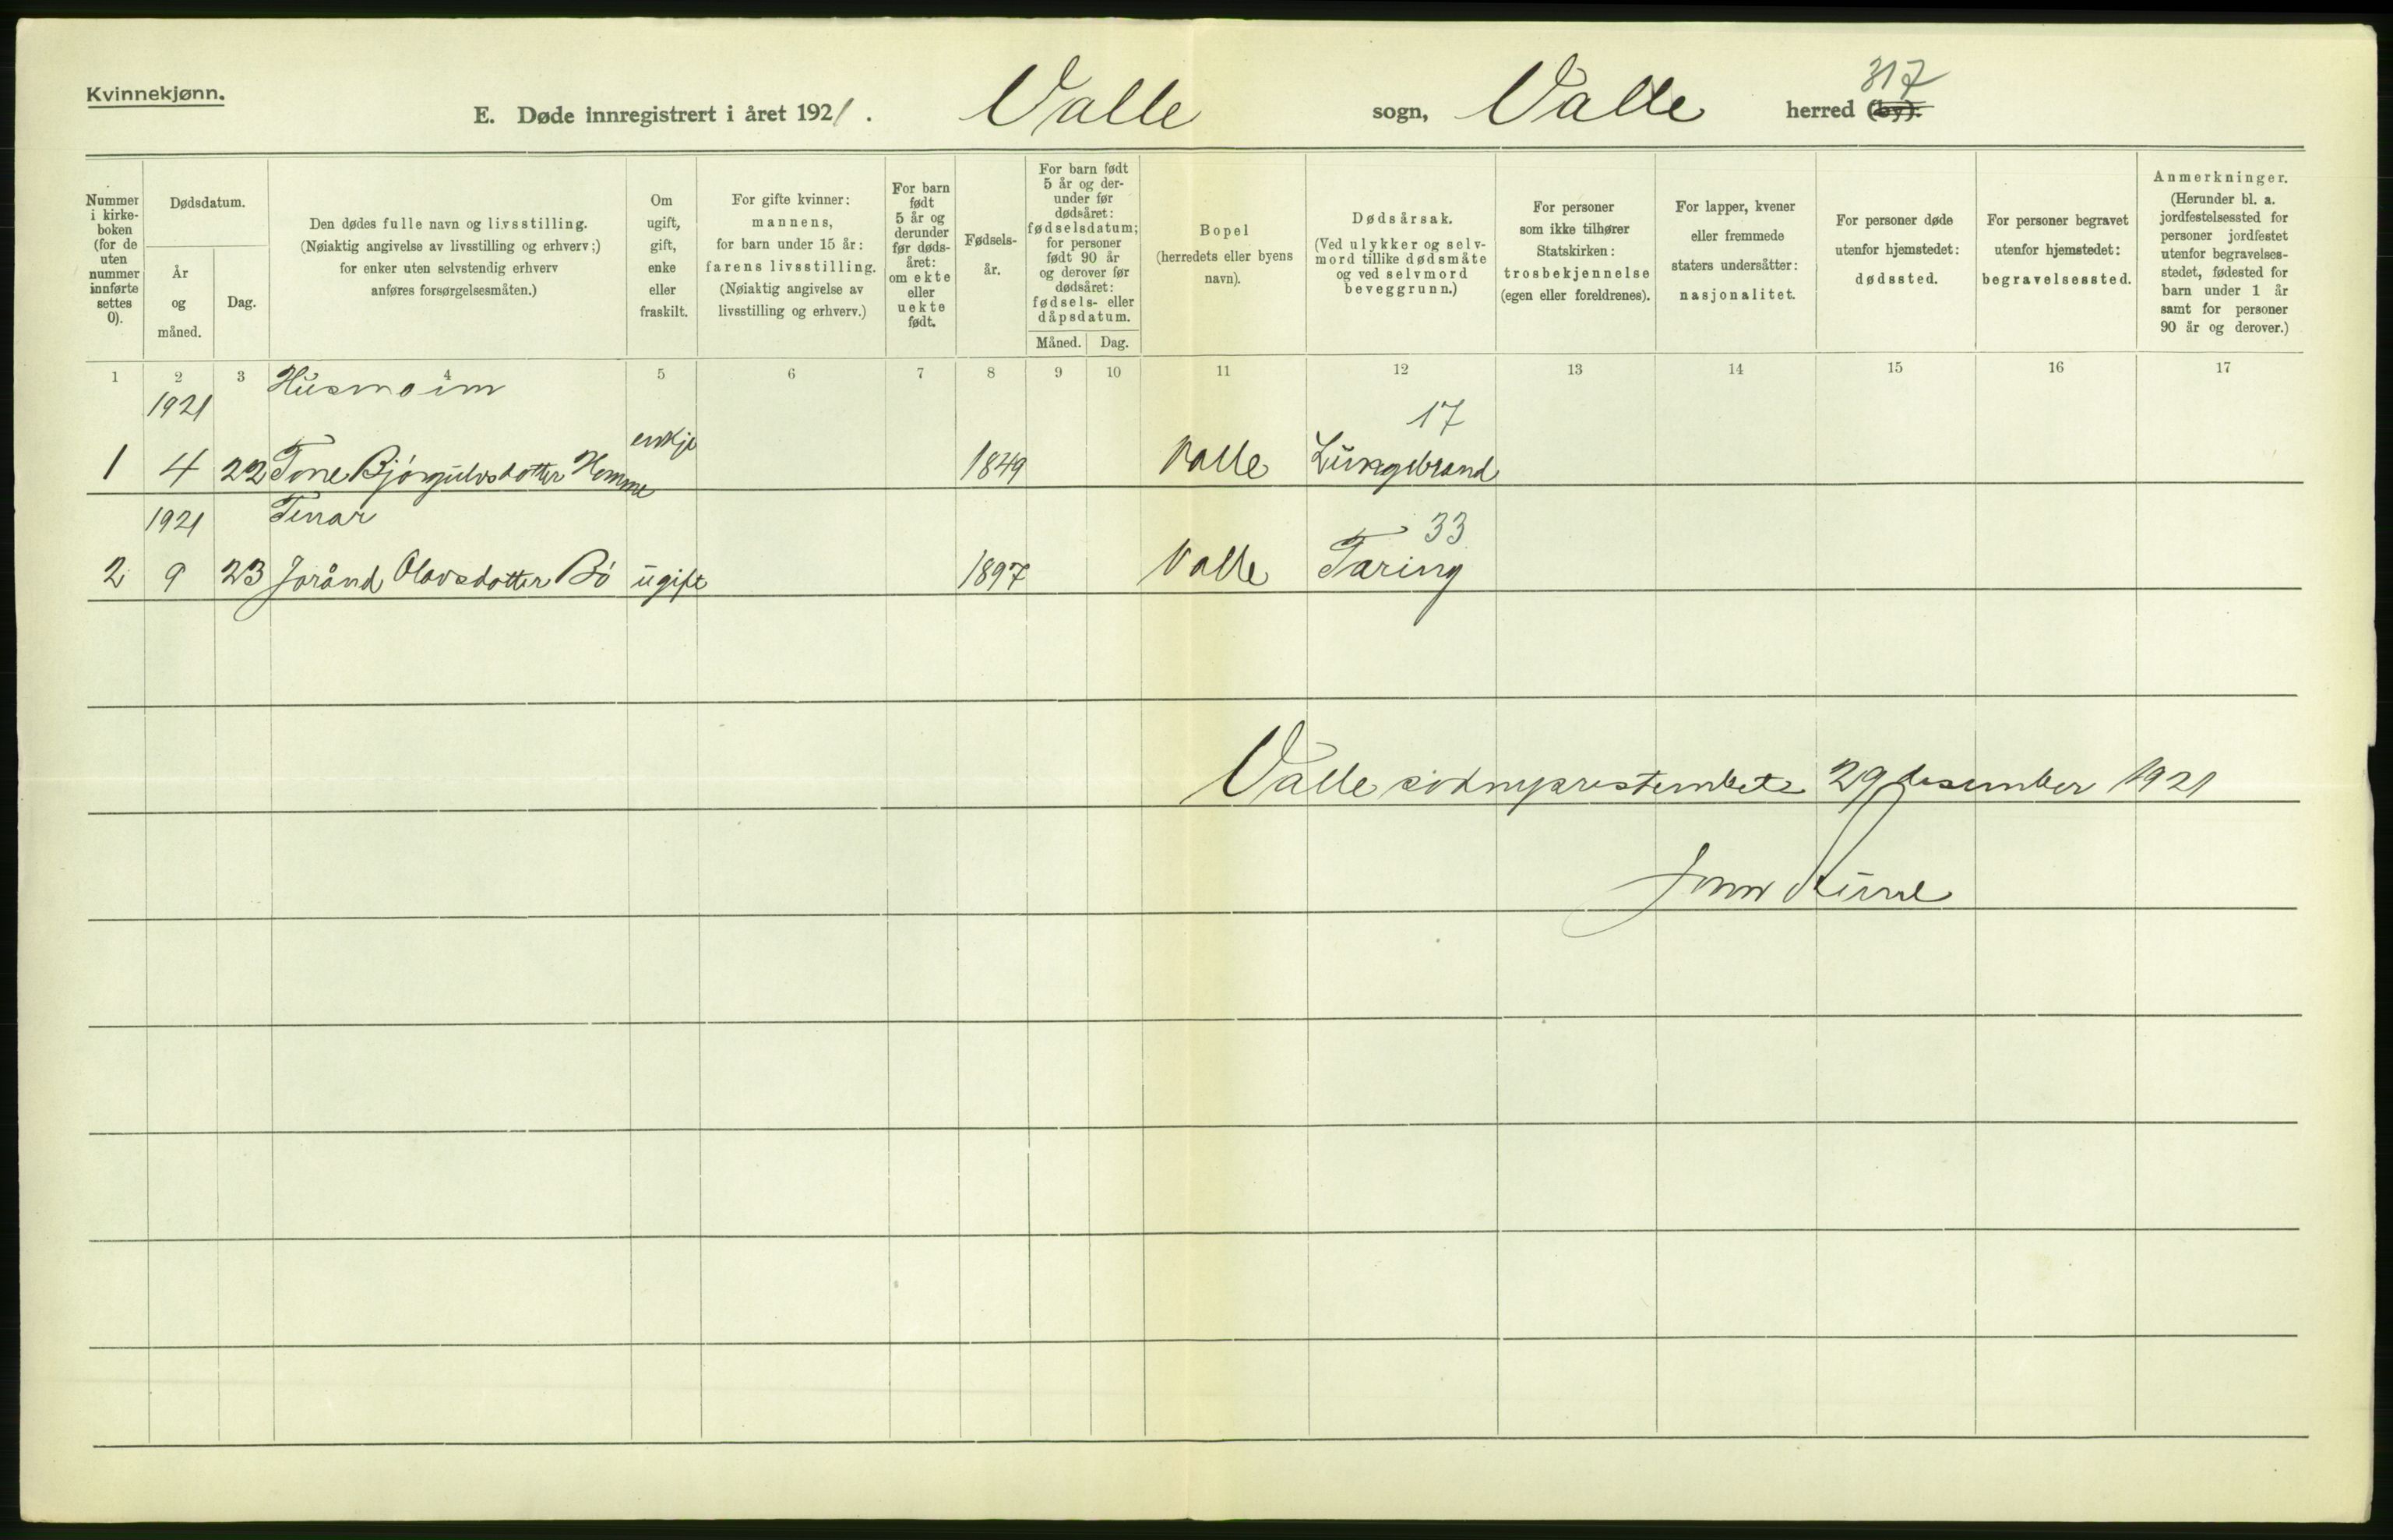 Kvinnekjønn.
317
E. Døde innregistrert i året 1921. Valle sogn, Valle herred (by).
Nummer i kirke-boken (for de uten nummer innførte settes 0).
Dødsdatum.
År og måned.
Dag.
Den dødes fulle navn og livsstilling.
(Nøiaktig angivelse av livsstilling og erhverv;)
for enker uten selvstendig erhverv
anføres forsørgelsesmåten.)
Om ugift, gift, enke eller fraskilt.
For gifte kvinner:
mannens,
for barn under 15 år:
farens livsstilling.
(Nøiaktig angivelse av
livsstilling og erhverv.)
For barn født 5 år og derunder før døds-året: om ekte eller uekte født.
Fødsels-år.
For barn født 5 år og der-under før dødsåret: fødselsdatum; for personer født 90 år og derover før dødsåret: fødsels- eller dåpsdatum.
Måned. Dag.
Bopel
(herredets eller byens
navn).
Dødsårsak.
(Ved ulykker og selv-
mord tillike dødsmåte
og ved selvmord
beveggrunn.)
For personer
som ikke tilhører
Statskirken:
trosbekjennelse
(egen eller foreldrenes).
For lapper, kvener
eller fremmede
staters undersåtter:
nasjonalitet.
For personer døde
utenfor hjemstedet:
dødssted.
For personer begravet
utenfor hjemstedet:
begravelsessted.
Anmerkninger.
(Herunder bl. a.
jordfestelsessted for
personer jordfestet
utenfor begravelses-
stedet, fødested for
barn under 1 år
samt for personer
90 år og derover.)
1 2 3 4 5 6 7 8 9 10 11 12 13 14 15 16 17
1921 Husmoim 17
1 4 22 Tone Bjørgulvsdotter Homme enkje 1849 Valle Lungebrand
1921 Tenar 33
2 9 23 Jorånd Olavsdotter Bø ugift 1897 Valle Tæring
Valle soknepresteembete 29 desember 1921